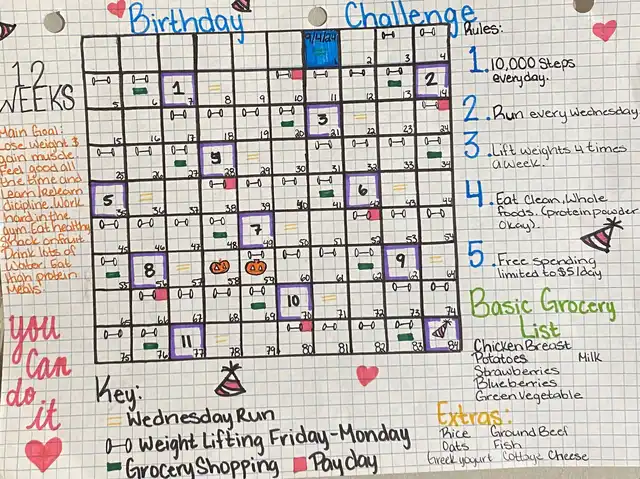 Birthday Challenge
12
WEEKS
Main Goal:
Lose Weight &
gain muscle.
Feel good all
the time and
Learn/Relearn
dicipline. Work
hard in the
gym. Eat healthy
snack on fruit
Drink lots of
Water. Eat
high protein
meals
you
can
do
it
9/4/24
2 3 4
5 6 1 8 9 10 11 12 13 2 14
15 16 17 18 19 20 3 21 22 23 24
25 26 27 4 28 29 30 31 32 33 34
5 35 36 37 38 39 40 41 6 42 43 44
45 46 47 48 7 49 50 51 52 53 54
55 8 56 57 58 59 60 61 62 9 63 64
65 66 67 68 69 10 70 71 72 73 74
75 76 11 77 78 79 80 81 82 83 84
Rules:
1. 10,000 Steps
everyday.
2. Run every Wednesday
3. Lift weights 4 times
a week.
4. Eat Clean, Whole
foods. (protein powder
Okay).
5. Free spending
limited to $51day
Basic Grocery
List
Chicken Breast
Potatoes Milk
Strawberries
Blueberries
Green Vegetable
Extras:
Rice Ground Beef
Oats Fish
Greek yogurt Cottage Cheese
Key:
Wednesday Run
Weight Lifting Friday-Monday
Grocery Shopping Payday